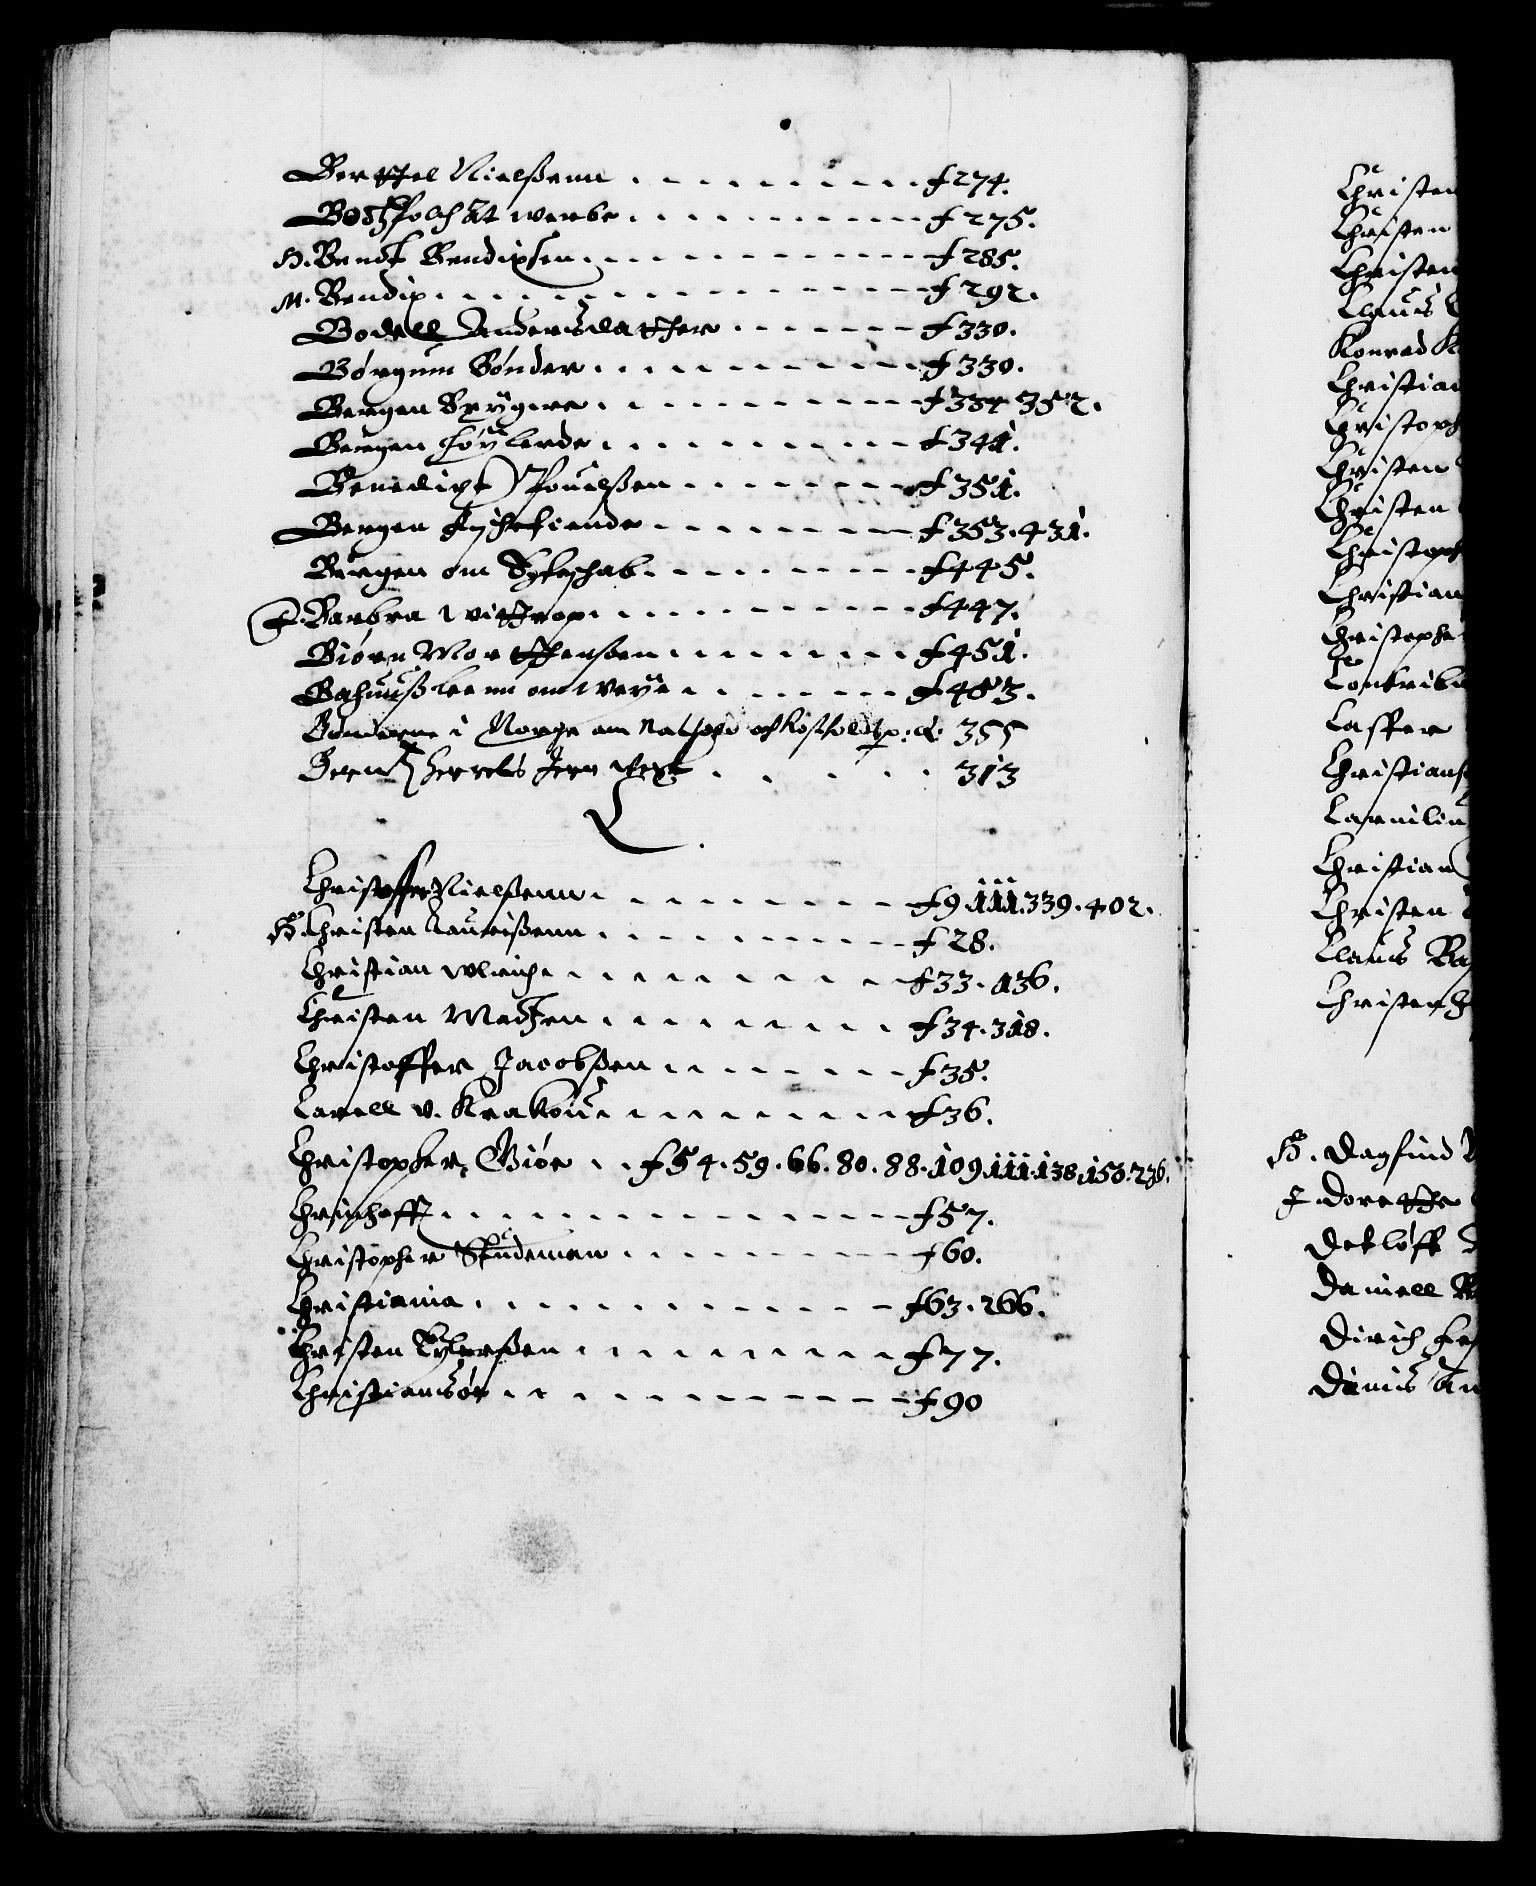 Berttel Nielßenn . . . . . . . . f 274.
Bodtzfolch at werbe . . . . . . . . f 275.
H. Bendt Bendixsen . . . . . . . . f 285.
M. Bendix . . . . . . . . f 292.
Bodell Andersdatther . . . . . . . f 330.
Børgum Bønder . . . . . . . . f 330.
Bergen Bryggere . . . . . . . . f 334 352.
Bergen . . . . . . . . f 341.
Benedigt Pouelßen . . . . . . . f 351.
Bergen . . . . . . . f 353. 431.
Bergen om . . . . . . . f 445.
F. Barbra Wittrop . . . . . . . f 447.
Biørn Mortthensen . . . . . . . f 451.
Bahuuß leenn om Veye . . . . . . . f 483.
Bønderne i Norge om 355
Berent 313
C.
Christoffer Nielßenn . . . . . . . f 9. 111. 339. 402.
H. Christen Lauritßenn . . . . . . . f 28.
Christian Wlrich . . . . . . . f 33. 136.
Christen Madtzen . . . . . . . f 34. 318.
Christoffer Jacobßen . . . . . . . f 35.
Carell v. Krakou . . . . . . . f 36.
Christopher Giøe . . f 54. 59. 66. 80. 88. 109. 111. 138. 153. 236.
. . . . . . . f 57.
Christopher Studeman . . . . . . . f 60.
Christiania . . . . . . . f 63. 266.
Christen . . . . . . . f 77.
Christiansør . . . . . . . f 90
Christen
Christen
Christen
Claus
Konrad
Christian
Christoph
Christen
Christen
Christoph
Christian
Christopher
Contribu
Casper
Christians
Corniliu
Christian
Christen
Claus
Christen
H. Dagfind
F. Dorethe
Detløff
Daniell
Dirich
Dinis